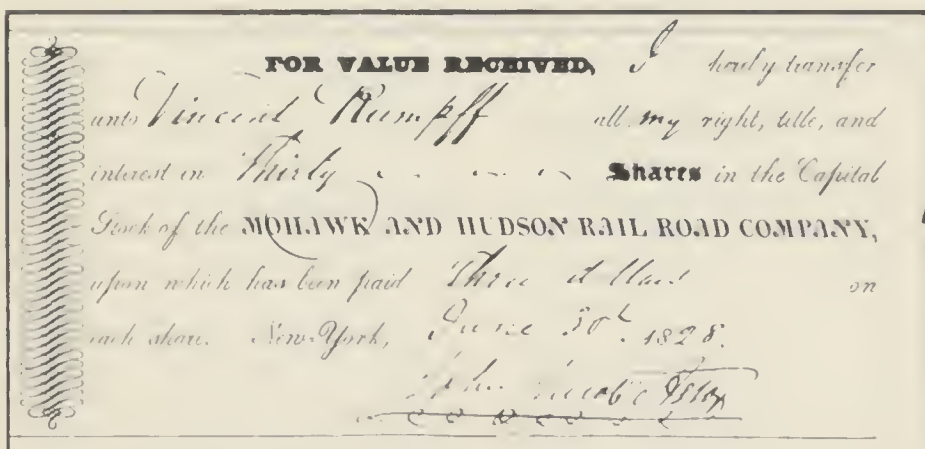 FOR VALUE RECEIVED, I hereby transfer
unto Vincent Rumpff all my right, title, and
interest in Thirty Shares in the Capital
Stock of the MOHAWK AND HUDSON RAIL ROAD COMPANY,
upon which has been paid Three dollars on
each share. New-York, June 30th 1828.
John Jacob Astor